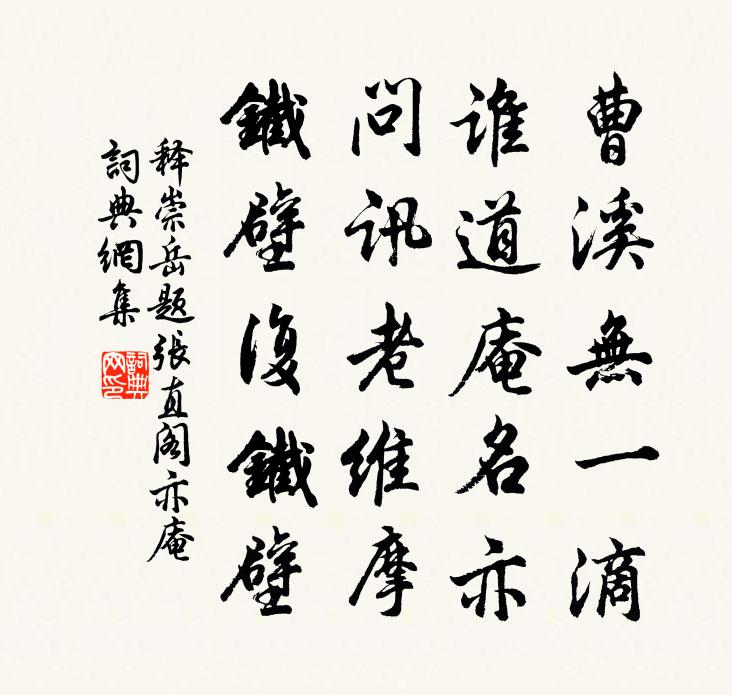 曹溪無一滴
誰道庵名亦
問訊老維摩
鐵壁復鐵壁
释崇岳題張直阁亦庵
詞典網集
詞典网印